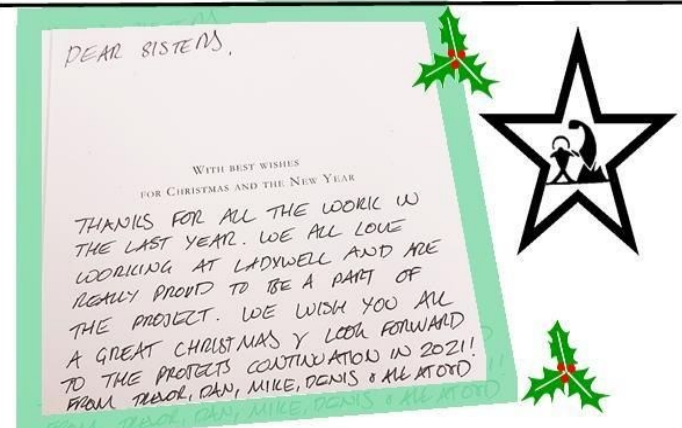 DEAR SISTERS,
WITH BEST WISHES
FOR CHRISTMAS AND THE NEW YEAR
THANKS FOR ALL THE WORK IN
THE LAST YEAR. WE ALL LOVE
WORKING AT LADYWELL AND ARE
REALLY PROUD TO BE A PART OF
THE PROJECT. WE WISH YOU ALL
A GREAT CHRISTMAS & LOOK FORWARD
TO THE PROJECTS CONTINUATION IN 2021!
FROM TREVOR, DAN, MIKE, DENIS & ALL AT